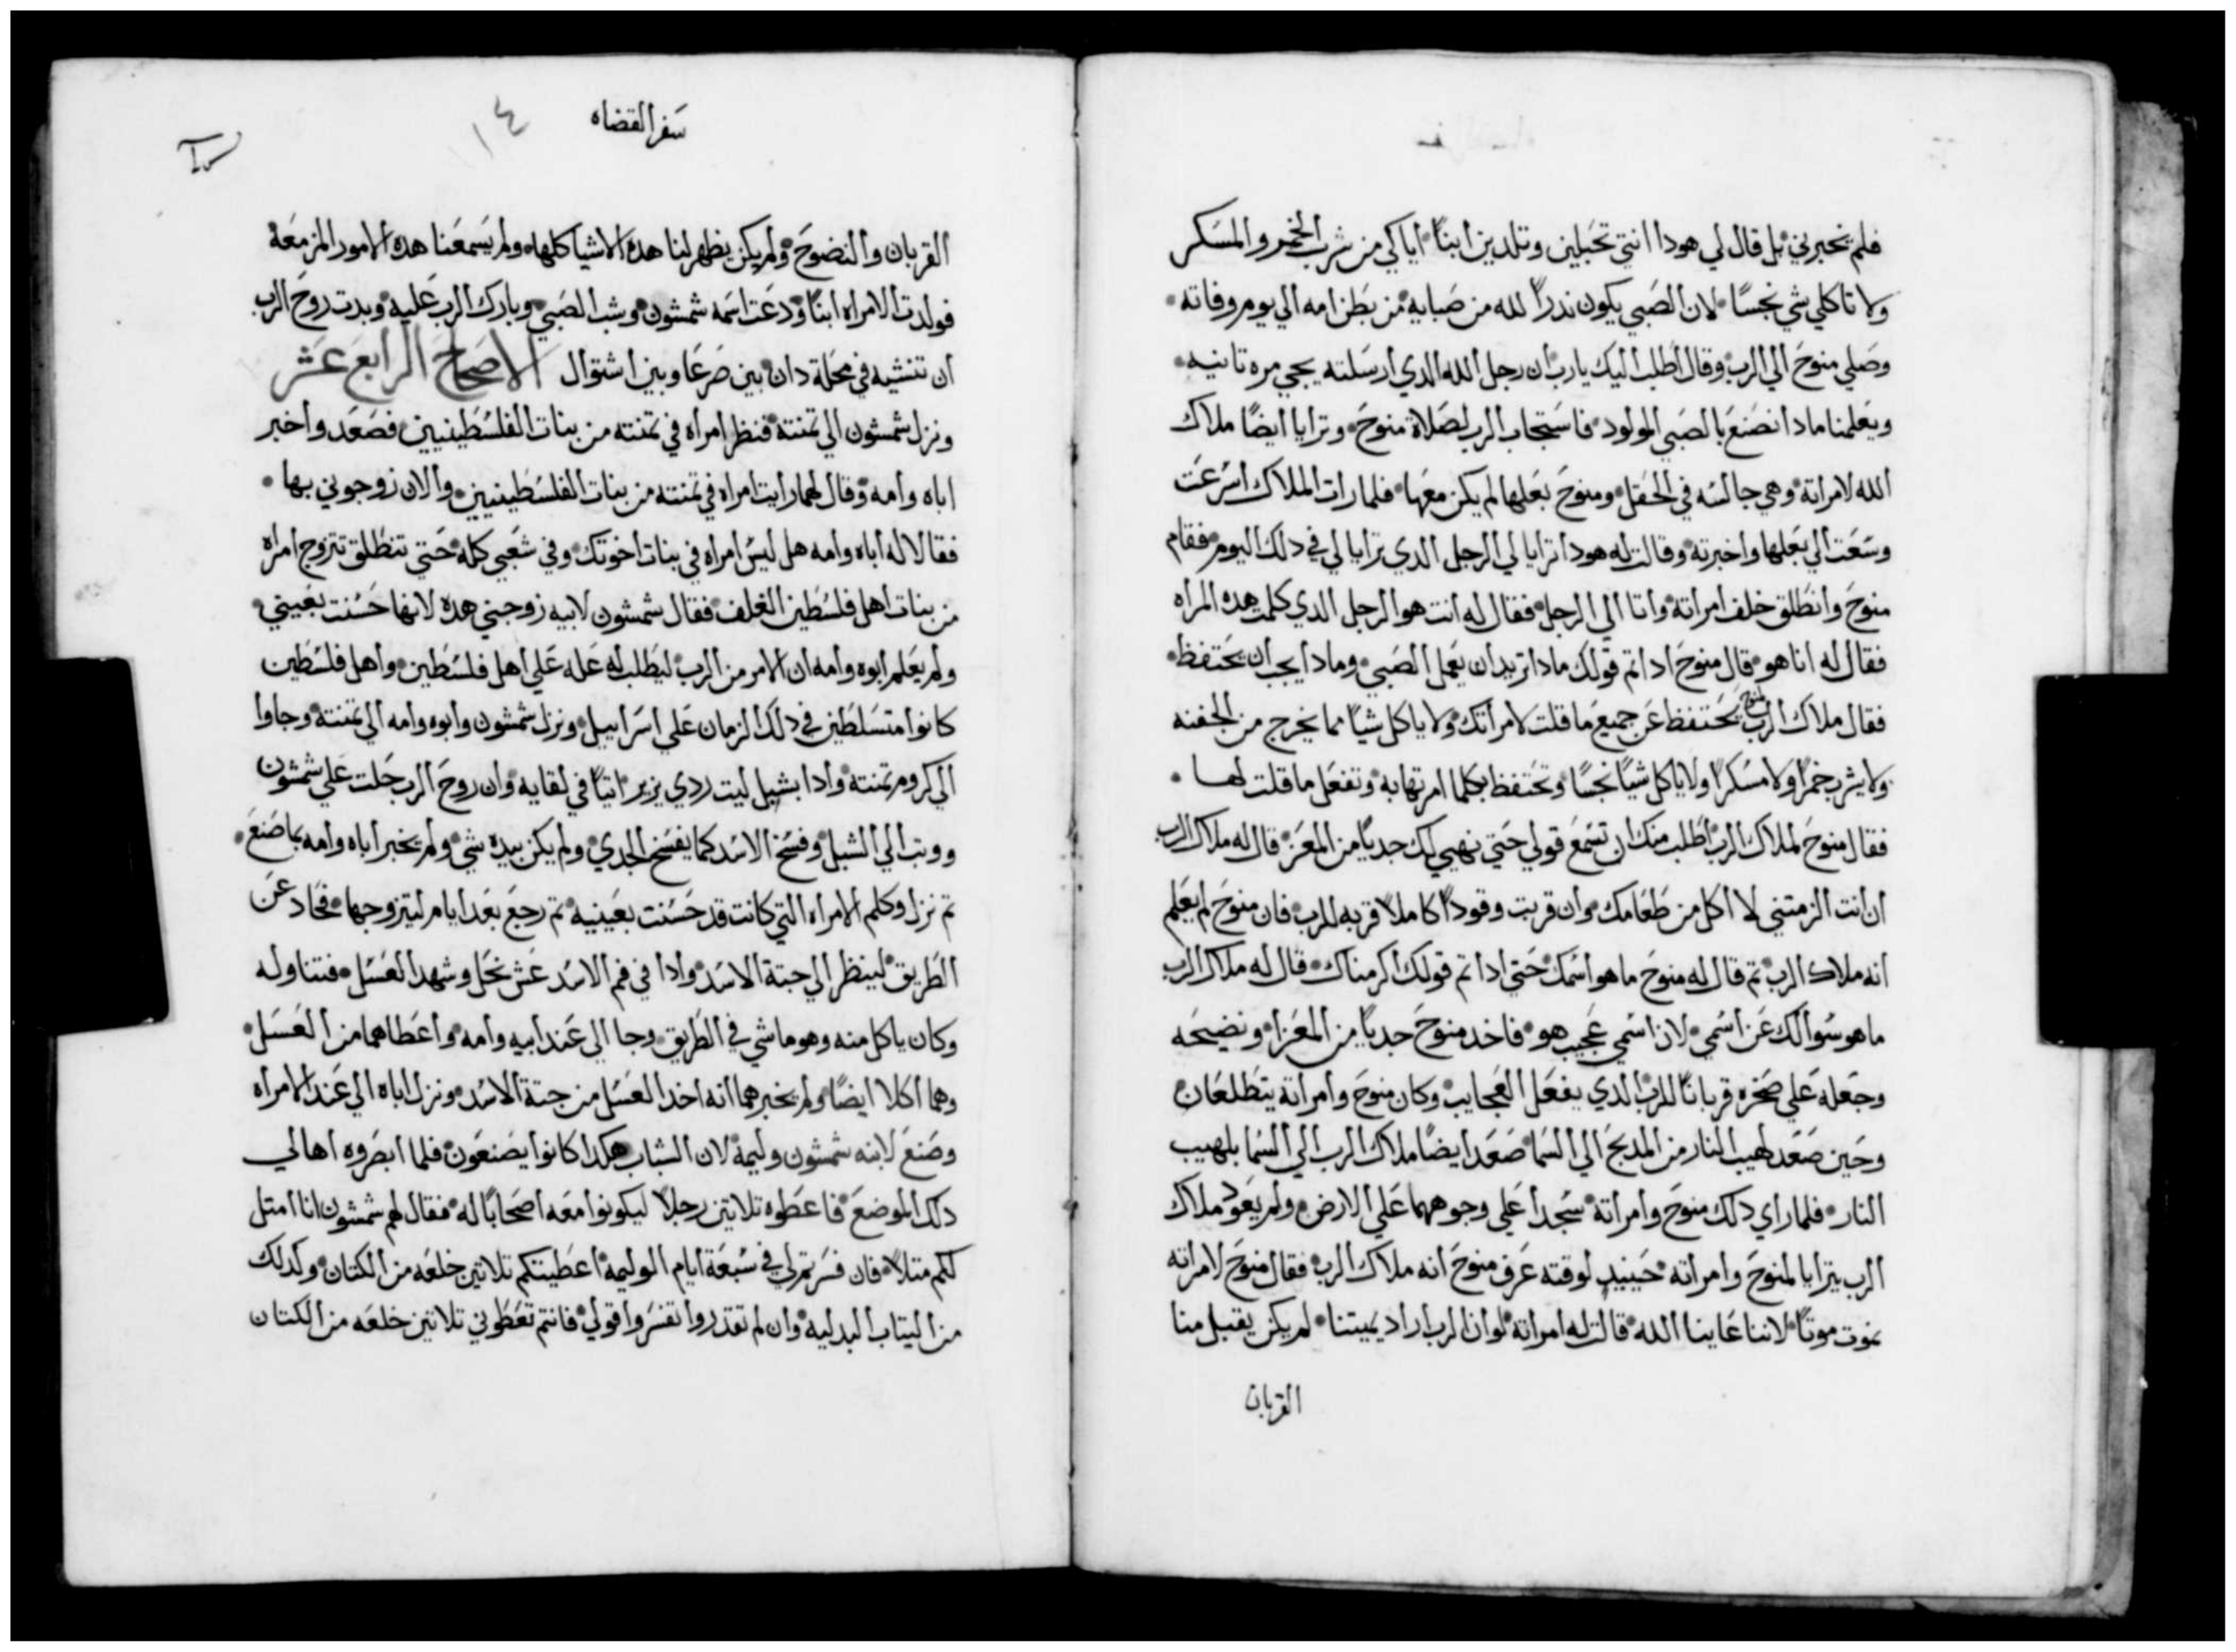 فلم يخبرني بل قال لي هودا انتي تحبلين وتلدين ابنًا اياكي من شرب الخمر والمسكر
ولا تاكلي شي نجسًا لان الصبي يكون ندرًا لله من صبايه من بطن امه الي يوم وفاته
وصلي منوح الي الرب وقال اطلب اليك يارب ان رجل الله الدي ارسلته يجي مره تانيه
ويعلمنا مادا نصنع بالصبي المولود فاستجاب الرب لصلاة منوح وترايا ايضًا ملاك
الله لامراته وهي جالسه في الحقل ومنوح بعلها لم يكن معها فلما رات الملاك اسرعت
وسعت الي بعلها واخبرته وقالت له هودا ترايا لي الرجل الدي ترايا لي في دلك اليوم فقام
منوح وانطلق خلف امراته واتا الي الرجل فقال له انت هو الرجل الدي كلمت هده المراه
فقال له انا هو قال منوح ادا تم قولك مادا تريد ان يعمل الصبي ومادا يجب ان يحتفظ
فقال ملاك الرب لمنوح يحتفظ عن جميع ما قلت لامراتك ولا ياكل شيًا مما يخرج من الجفنه
ولا يشرب خمرًا ولا مسكرًا ولا ياكل شيًا نجسًا وتحتفظ بكلما امرتها به وتفعل ما قلت لها
فقال منوح لملاك الرب اطلب منك ان تسمع قولي حتي نهيي لك جديًا من المعز قال له ملاك الرب
ان انت الزمتني لا اكل من طعامك وان قربت وقودًا كاملًا قربه للرب فان منوح لم يعلم
انه ملاك الرب تم قال له منوح ما هو اسمك حتي ادا تم قولك اكرمناك قال له ملاك الرب
ما هو سوالك عن اسمي لان اسمي عجيب هو فاخد منوح جديًا من المعزا ونضيحه
وجعله علي صخره قربانًا للرب الدي يفعل العجايب وكان منوح وامراته يتطلعان
وحين صعد لهيب النار من المدبح الي السما صعد ايضًا ملاك الرب الي السما بلهيب
النار فلما راي دلك منوح وامراته سجدا علي وجوههما علي الارض ولم يعود ملاك
الرب يترايا لمنوح وامراته حينيد لوقته عرف منوح انه ملاك الرب فقال منوح لامراته
نموت موتًا لاننا عاينا الله قالت له امراته لو ان الرب اراد يميتنا لم يكن يقبل منا
القربان
سفر القضاه
١٤
القربان والنضوح ولم يكن يظهر لنا هده الاشيا كلها ولم يسمعنا هده الامور المزمعه
فولدت الامراه ابنًا ودعت اسمه شمشون وشب الصبي وبارك الرب عليه وبدت روح الرب
ان تنشيه في محلة دان بين صرعا وبين اشتوال الاصحاح الرابع عشر
ونزل شمشون الي تمنته فنظر امراه في تمنته من بنات الفلسطينيين فصعد واخبر
اباه وامه وقال لهما رايت امراه في تمنته من بنات الفلسطينيين والان زوجوني بها
فقالا له اباه وامه هل ليس امراه في بنات اخوتك وفي شعبي كله حتي تنطلق تتزوج امراه
من بنات اهل فلسطين الغلف فقال شمشون لابيه زوجني هده لانها حسنت بعيني
ولم يعلم ابوه وامه ان الامر من الرب ليطلب له عله علي اهل فلسطين واهل فلسطين
كانوا متسلطين في دلك الزمان علي اسراييل ونزل شمشون وابوه وامه الي تمنته وجاوا
الي كروم تمنته وادا بشبل ليت ردي يزير اتيًا في لقايه وان روح الرب حلت علي شمشون
ووتب الي الشبل وفسخ الاسد كما يفسخ الجدي ولم يكن بيده شي ولم يخبر اباه وامه بما صنع
تم نزل وكلم الامراه التي كانت قد حسنت بعينيه تم رجع بعد ايام ليتزوجها فحاد عن
الطريق لينظر الي جتة الاسد وادا في فم الاسد عش نحل وشهد العسل فتناوله
وكان ياكل منه وهو ماشي في الطريق وجا الي عند ابيه وامه واعطاهما من العسل
وهما اكلا ايضًا ولم يخبرهما انه اخد العسل من جتة الاسد ونزل اباه الي عند الامراه
وصنع لابنه شمشون وليمه لان الشباب هكدا كانوا يصنعون فلما ابصروه اهالي
دلك الموضع فاعطوه تلاتين رجلًا ليكونوا معه اصحابًا له فقال لهم شمشون انا امتل
لكم متلًا فان فسرتم لي في سبعة ايام الوليمه اعطيتكم تلاتين خلعه من الكتان وكدلك
من التياب البدليه وان لم تقدروا تفسروا قولي فانتم تعطوني تلاتين خلعه من الكتان